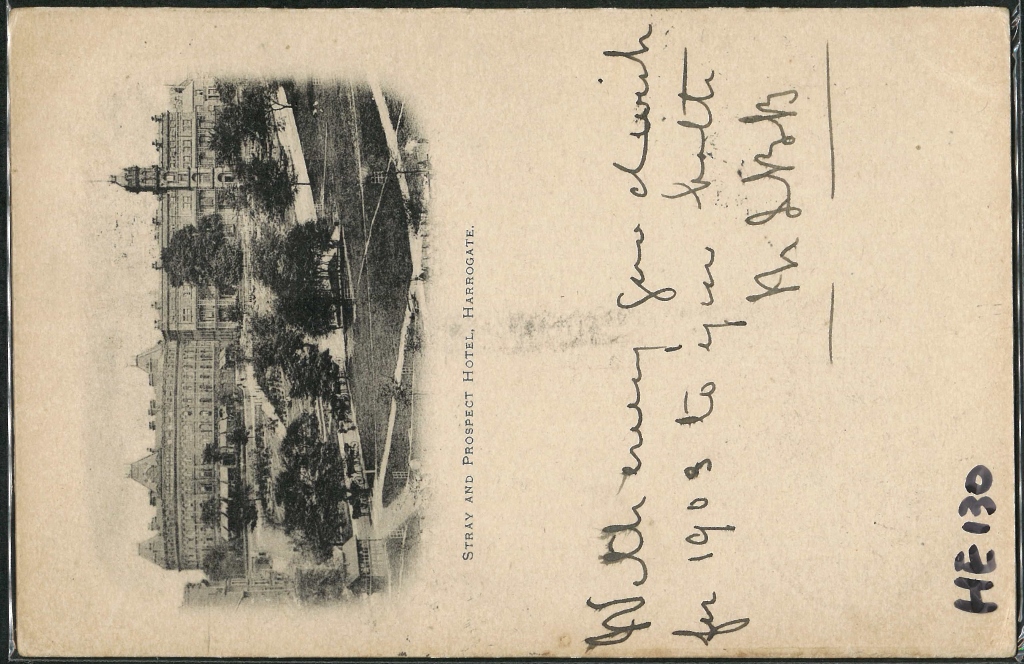 STRAY AND PROSPECT HOTEL, HARROGATE.
With every good wish
for 1903 to you both
HE 130